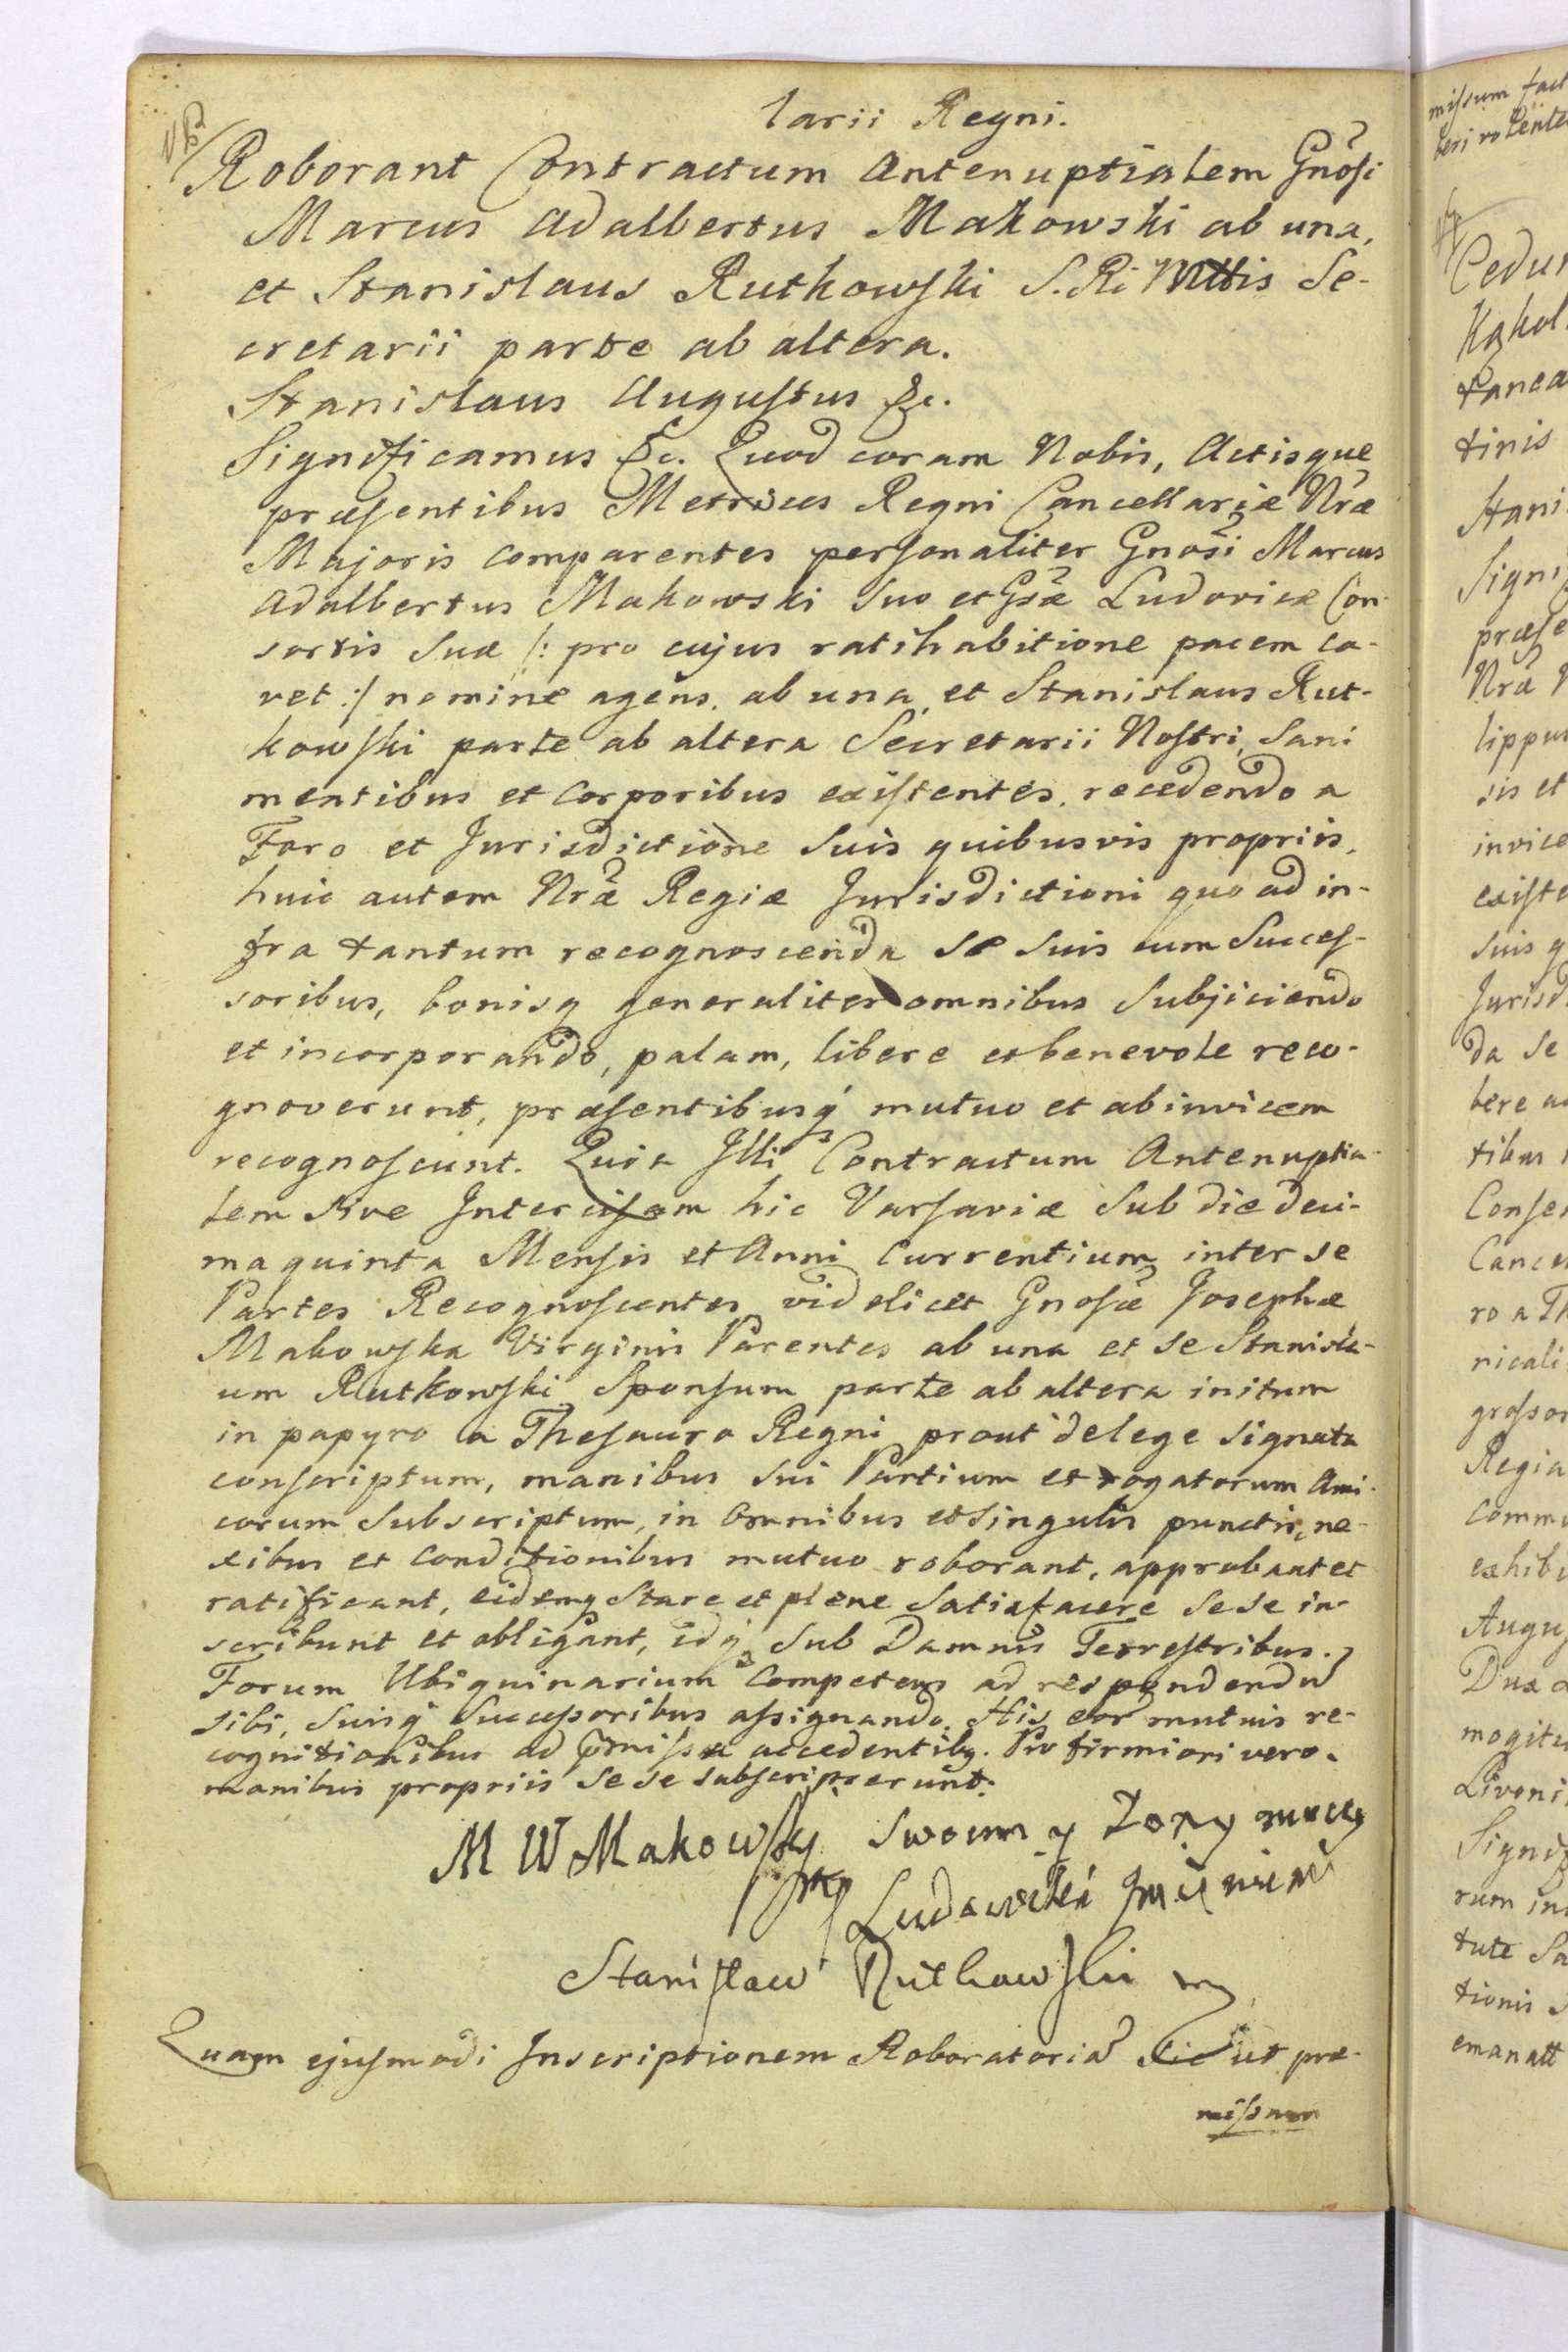 larii Regni.
Roborant Contractum Antenuptialem Gnõsi
Marcus Adalbertus Makowski ab una,
et Stanislaus Rutkowski S. Ri Mttis Se-
cretarii parte ab altera.
Stanislaus Augustus &c.
Significamus &c. Quod coram Nobis, Actisque
præsentibus Metrices Regni Cancellariæ Nræ
Majoris comparentes personaliter Gnosi Marcus
Adalbertus Makowski suo et Gsæ Ludovicæ Con-
sortis suæ /: pro cujus ratihabitione pacem ca-
vet :/ nomine agens, ab una, et Stanislaus Rut-
kowski parte ab altera Secretarii Nostri, Sani
mentibus et corporibus existentes, recedendo a
Foro et Jurisdictione suis quibusvis propriis,
huic autem Nræ Regiæ Jurisdictioni quo ad in-
fra tantum recognoscenda se suis cum Succes-
soribus, bonisq generaliter omnibus Subjiciendo
et incorporando, palam, libere et benevole reco-
gnoverunt, præsentibusq mutuo et abinvicem
recognoscunt. Quia Illi Contractum Antenuptia-
lem sive Intercisam hic Varsaviæ Sub die deci-
ma quinta Mensis et Anni Currentium inter se
Partes Recognoscentes videlicet Gnosæ Josephæ
Makowska Virginis Parentes ab una et se Stanisla-
um Rutkowski Sponsum parte ab altera initum
in papyro a Thesauro Regni prout de lege signata
conscriptum, manibus sui Partium et rogatorum Ami-
corum subscriptum, in omnibus et Singulis punctis, ne-
xibus et Conditionibus mutuo roborant, approbant et
ratificant, eidemq Stare et plene Satisfacere sese in-
scribunt et obligant, idq Sub Damnis Terrestribus.
Forum Ubiquinarium Competens ad respondendũ
sibi, Suisq Successoribus assignando. His eor mutuis re-
cognitionibus ad præmissa accedentibq. Pro firmiori vero
manibus propriis sese subscripserunt.
M W Makowsky Swoim y Zony moiey
Ludowiki Imieniem
Stanisław Rutkowski
Quam ejusmodi Inscriptionem Roboratoriã sic ut præ-
missum
missum fact
Cedun
Kąkol
tanea
tinis
Stani
Signi
præse
Nræ
lippus
sis et
invice
existe
suis q
Jurisd
da se
bere
tibus
Conse
Cance
ro a Th
nicali
grossor
Regia
Commu
exhib
Augus
Dux
mogit
Livoni
Signif
rum in
tute Sa
tionis
emanatt